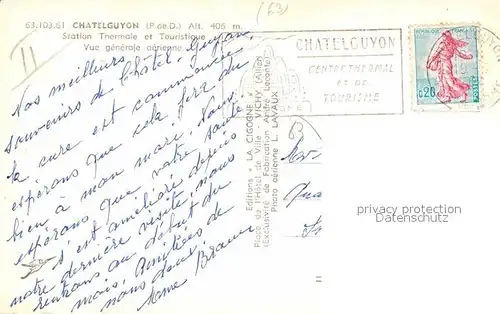 63.103.51 CHATELGUYON (P.-de-D.) Alt. 406 m.
Station Thermale et Touristique
Vue générale aérienne
(63)
11
Nos meilleurs
souvenirs de Châtel-Guyon,
la cure est commencée
espérons que cela fera du
bien à mon mari. Nous
espérons que votre santé
s'est améliorée depuis
notre dernière visite, nous
rentrons au début du
mois, Amitiés de
nous deux.
Mme Braun
CHATELGUYON
CENTRE THERMAL
ET DE
TOURISME
Editions "LA CIGOGNE"
Place de l'Hôtel de Ville - VICHY (Allier)
(Exclusivité de Fabrication Aimée Leconte)
Photo aérienne L. LAVAUX
63
0,20
POSTES
privacy protection
watermark